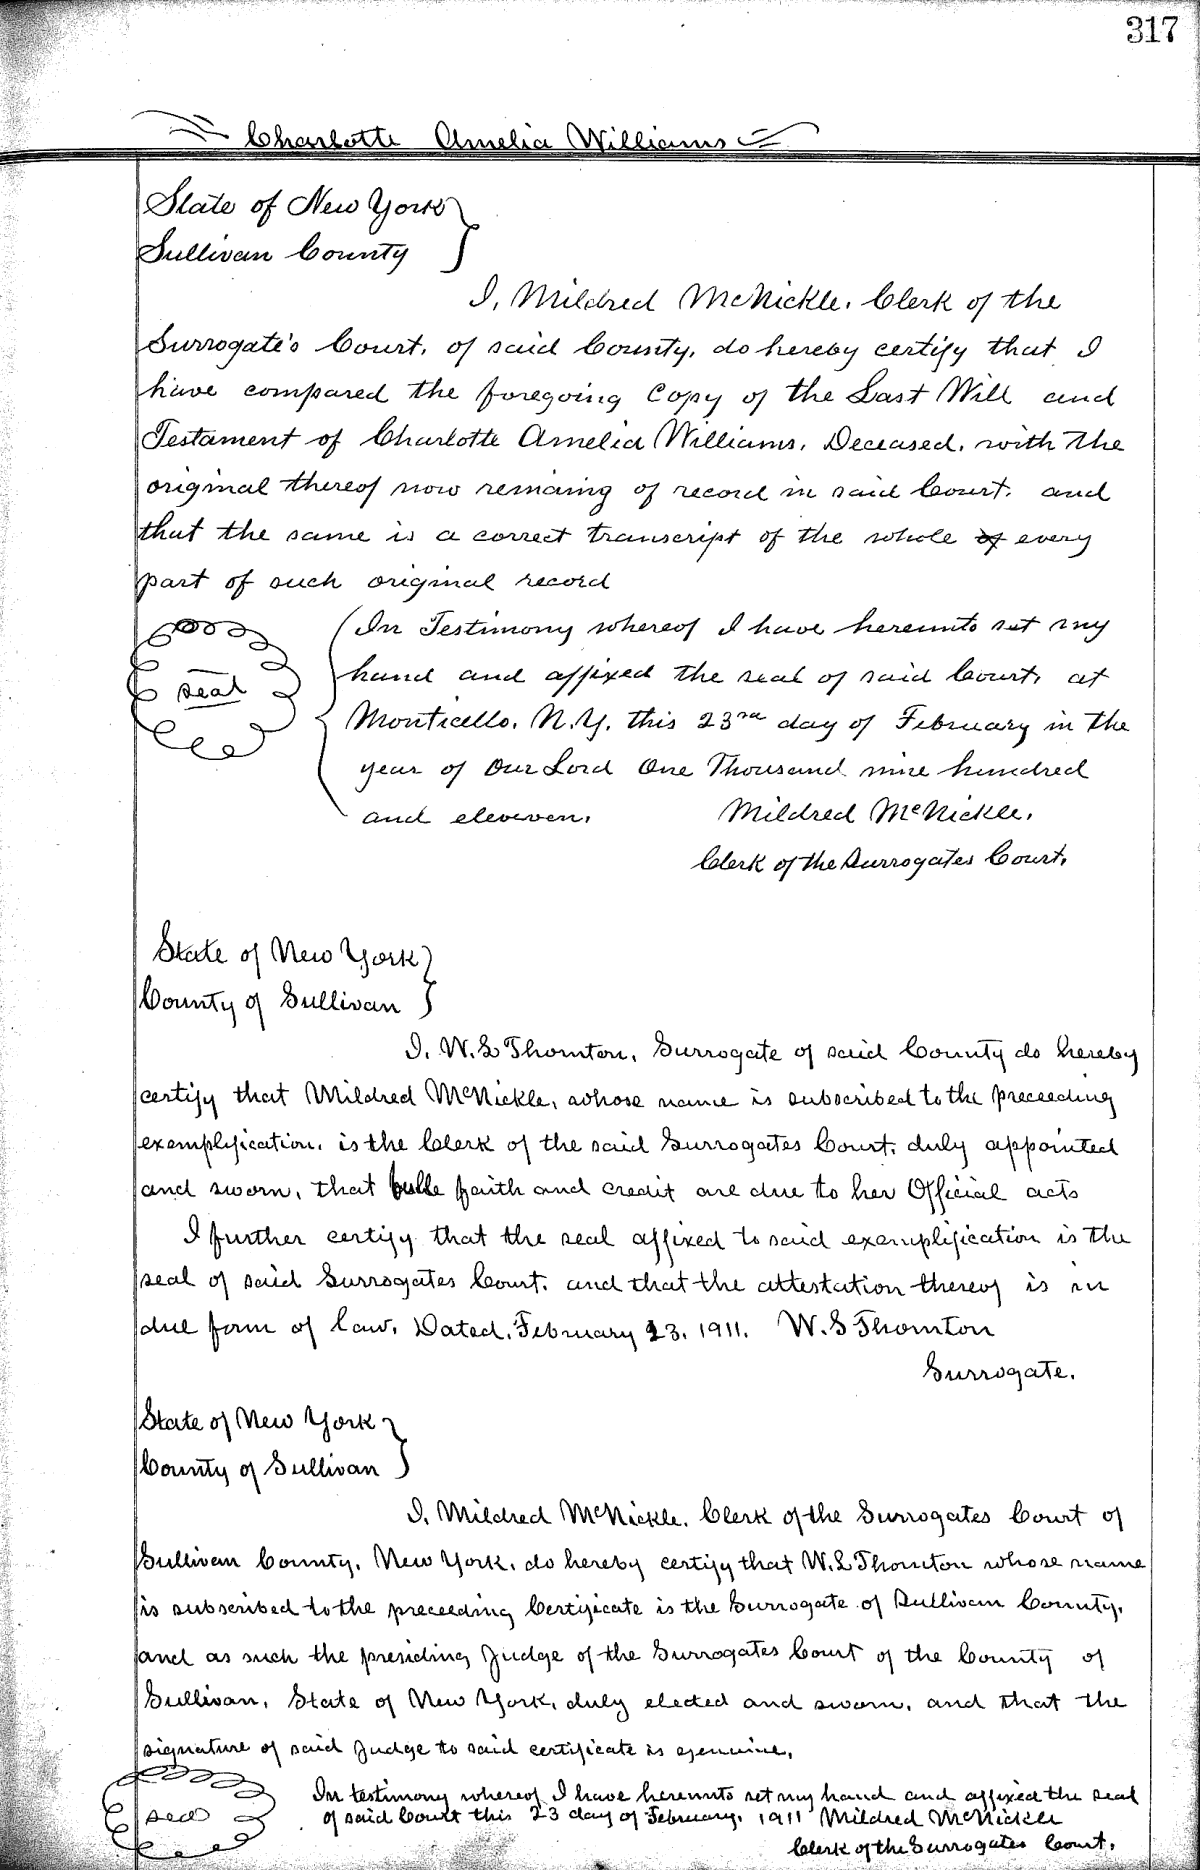 317
Charlotte Amelia Williams
State of New York
Sullivan County
I, Mildred McNickle, Clerk of the
Surrogate's Court, of said County, do hereby certify that I
have compared the foregoing Copy of the Last Will and
Testament of Charlotte Amelia Williams, Deceased, with the
original thereof now remaing of record in said Court, and
that the same is a correct transcript of the whole of every
part of such original record
In Testimony whereof I have hereunto set my
hand and affixed the seal of said Court, at
seal
Monticello, N.Y. this 23rd day of February in the
year of Our Lord One Thousand nine hundred
and eleveven.
Mildred McNickle,
Clerk of the Surrogates Court,
State of New York
County of Sullivan
I, W.S Thornton, Surrogate of said County do hereby
certify that Mildred McNickle, whose name is subscribed to the preceeding
exemplification, is the Clerk of the said Surrogates Court, duly appointed
and sworn, that fulle faith and credit are due to her Official acts
I further certify that the seal affixed to said exemplification is the
seal of said Surrogates Court, and that the attestation thereof is in
due form of law, Dated, February 23, 1911. W.S Thornton
Surrogate.
State of New York
County of Sullivan
I, Mildred McNickle, Clerk of the Surrogates Court of
Sullivan County, New York, do hereby certify that W.S Thornton whose name
is subscribed to the preceeding Certificate is the Surrogate of Sullivan County,
and as such the presiding Judge of the Surrogates Court of the County of
Sullivan, State of New York, duly elected and sworn, and that the
signature of said Judge to said certificate is genuine,
In testimony whereof I have hereunto set my hand and affixed the seal
seal
of said Court this 23 day of February, 1911 Mildred McNickle
Clerk of the Surrogates Court,